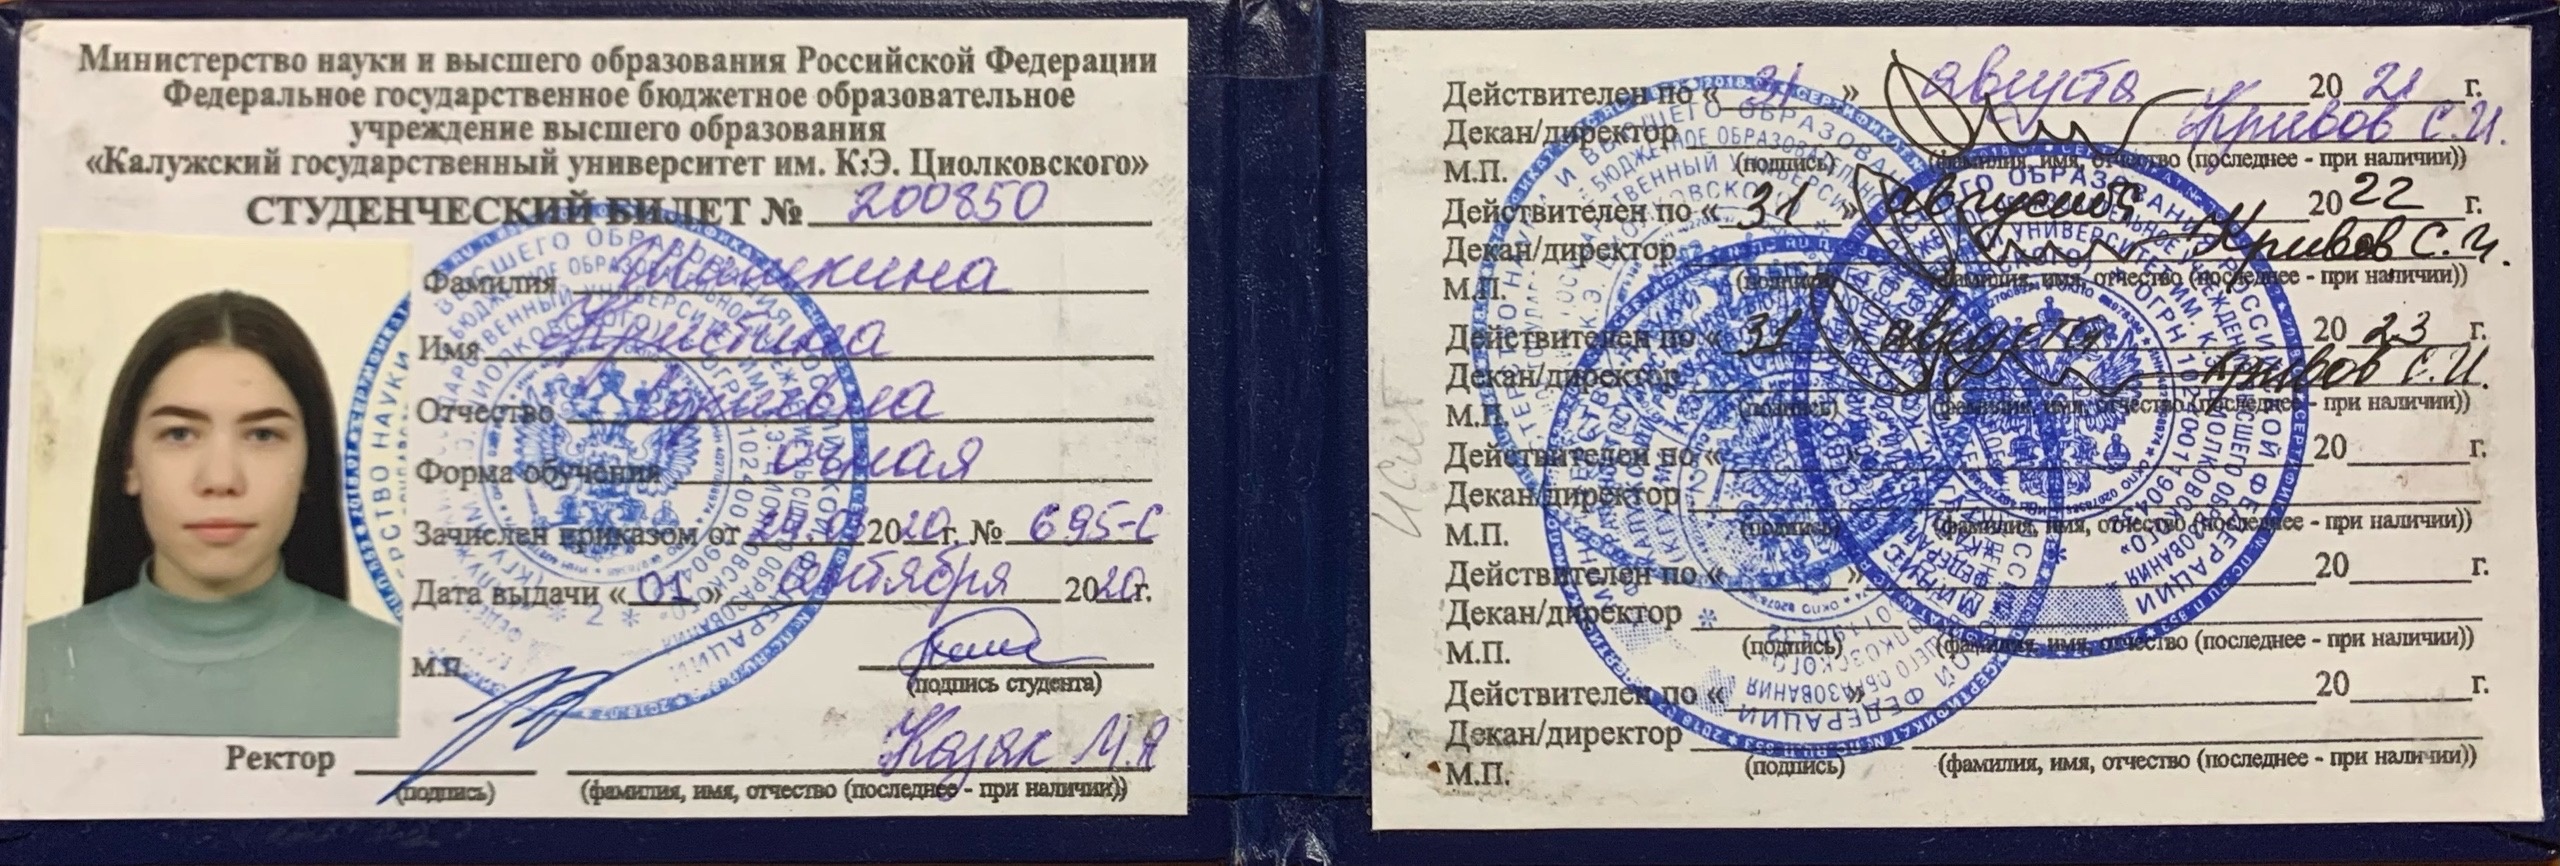 Министерство науки и высшего образования Российской Федерации
Федеральное государственное бюджетное образовательное
учреждение высшего образования
«Калужский государственный университет им. К.Э. Циолковского»
СТУДЕНЧЕСКИЙ БИЛЕТ № 200850
Фамилия
Имя Кристина
Отчество Юрьевна
Форма обучения очная
Зачислен приказом от 2020 г. № 695-С
Дата выдачи «01» сентября 2020г.
М.П.
(подпись студента)
Ректор Казак М.А
(подпись) (фамилия, имя, отчество (последнее - при наличии))
Действителен по «31» августа 2021 г.
Декан/директор Кривов С.И.
(подпись) (фамилия, имя, отчество (последнее - при наличии))
М.П.
Действителен по «31» августа 2022 г.
Декан/директор Кривов С.И.
(подпись) (фамилия, имя, отчество (последнее - при наличии))
М.П.
Действителен по «31» августа 2023 г.
Декан/директор Кривов С.И.
(подпись) (фамилия, имя, отчество (последнее - при наличии))
М.П.
Действителен по « » 20 г.
Декан/директор
(подпись) (фамилия, имя, отчество (последнее - при наличии))
М.П.
Действителен по « » 20 г.
Декан/директор
(подпись) (фамилия, имя, отчество (последнее - при наличии))
М.П.
Действителен по « » 20 г.
Декан/директор
(подпись) (фамилия, имя, отчество (последнее - при наличии))
М.П.